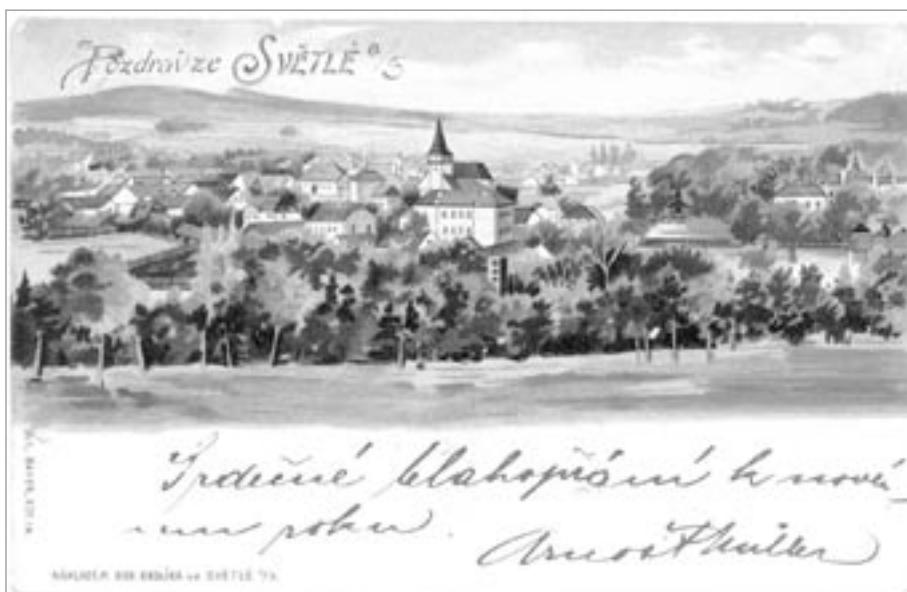 Pozdrav ze SVĚTLÉ n/S
Srdečné blahopřání k nové-
mu roku.
Arnošt Müller
NÁKLADEM SVĚTLÉ n/S.